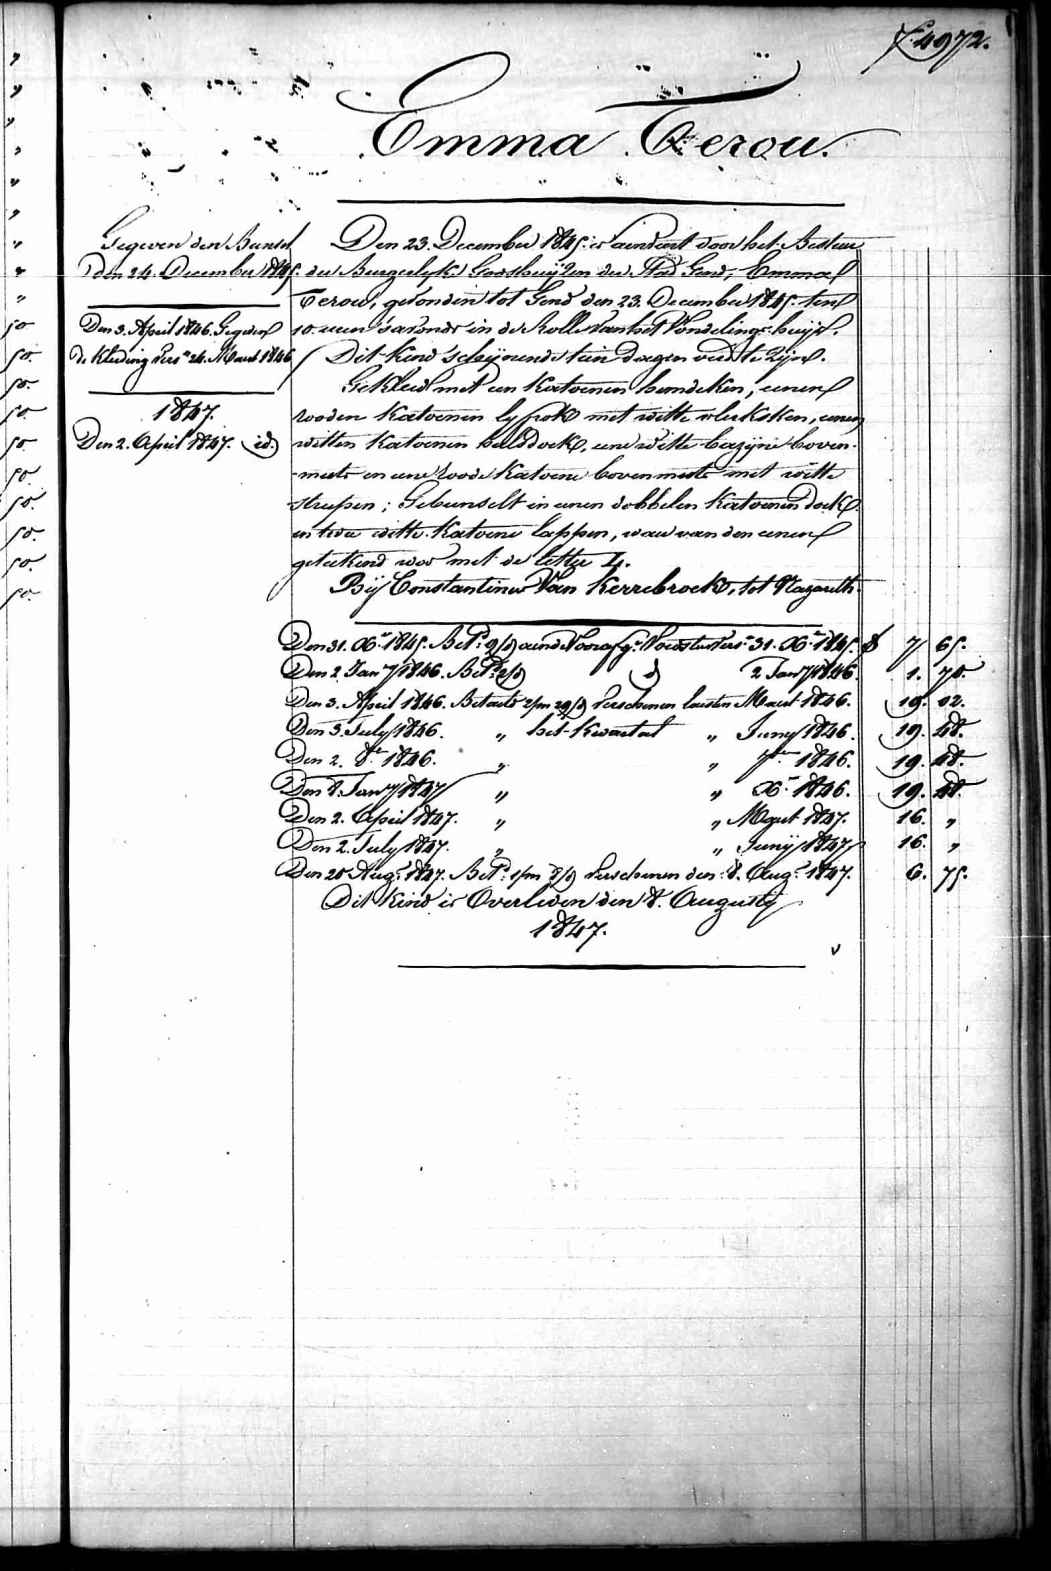 N.º 4972.
Emma Terou.
Gegeven den Bunsel
Den 24. December 1845.
Den 3. April 1846. Gegeven
de Kleeding Vers.n 24. Maert 1846
1847.
Den 2. April 1847. id.
Den 23. December 1845. is aenveert door het Bestuer
der Burgerlyke Godshuijzen der Stad Gend, Emma
Terou, gevonden tot Gend den 23. December 1845. ten
10. uren 's avonds in de Rolle van het Vondelings-huijs.
Dit kind scheijnende tien dagen oud te zijn.
Gekleed met een Katoenen hemdeken, eenen
rooden Katoenen lyfrok met witte vlekskens, eenen
witten Katoenen halsdoek, eene witte bazijne boven-
-muts en eene roode Katoene bovenmuts met witte
streepen; Gebunselt in eenen dobbelen Katoenen doek
en twee witte Katoene lappen, waer van den eenen
geteekend was met de letter L.
Bij Constantinus Van Kerrebroeck, tot Nazareth.
Den 31. Xber 1845. Bet.d 9/d aen de Voorafg.e Voedster Vers.n 31. Xber 1845. f 7 65.
Den 2. Jany 1846. Bet.d 2/d d 2 Jany 1846. 1. 70.
Den 3. April 1846. Betaelt 2/m 29/d Verschenen laesten Maert 1846. 19. 02.
Den 3. July 1846. " het Kwartael " Juny 1846. 19. 48.
Den 2. 8ber 1846. " " 7ber 1846. 19. 48.
Den 8. Jany 1847 " " Xber 1846. 19. 48.
Den 2. April 1847. " " Maert 1847. 16. "
Den 2. July 1847. " " Junij 1847 16. "
Den 28 Aug.t 1847. Bet.d 1/m 8/d Verschenen den 8. Aug.t 1847. 6. 75.
Dit kind is Overleden den 8. Augusty
1847.